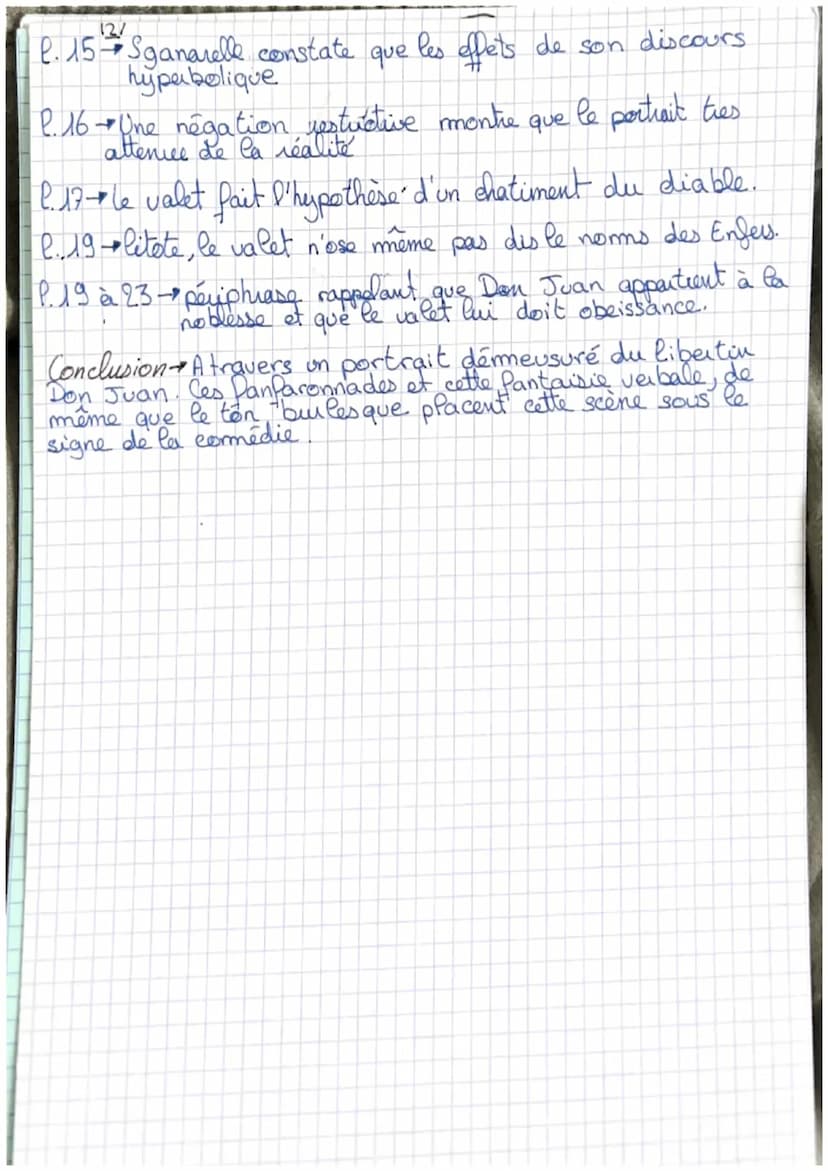 12/
l. 15 → Sganarelle constate que les effets de son discours
hyperbolique
l. 16 → Une négation restrictive montre que le portrait tres
attenuee de la réalité
l. 17 → le valet fait l'hypothèse d'un chatiment du diable.
l. 19 → litote, le valet n'ose même pas dis le noms des Enfers.
l. 19 à 23 → périphrase rappelant que Dom Juan appartient à la
noblesse et que le valet lui doit obeissance.
Conclusion → A travers un portrait démeusuré du libertin
Don Juan. Ces fanfaronnades et cette fantaisie verbale, de
même que le ton burlesque placent cette scène sous le
signe de la comédie.